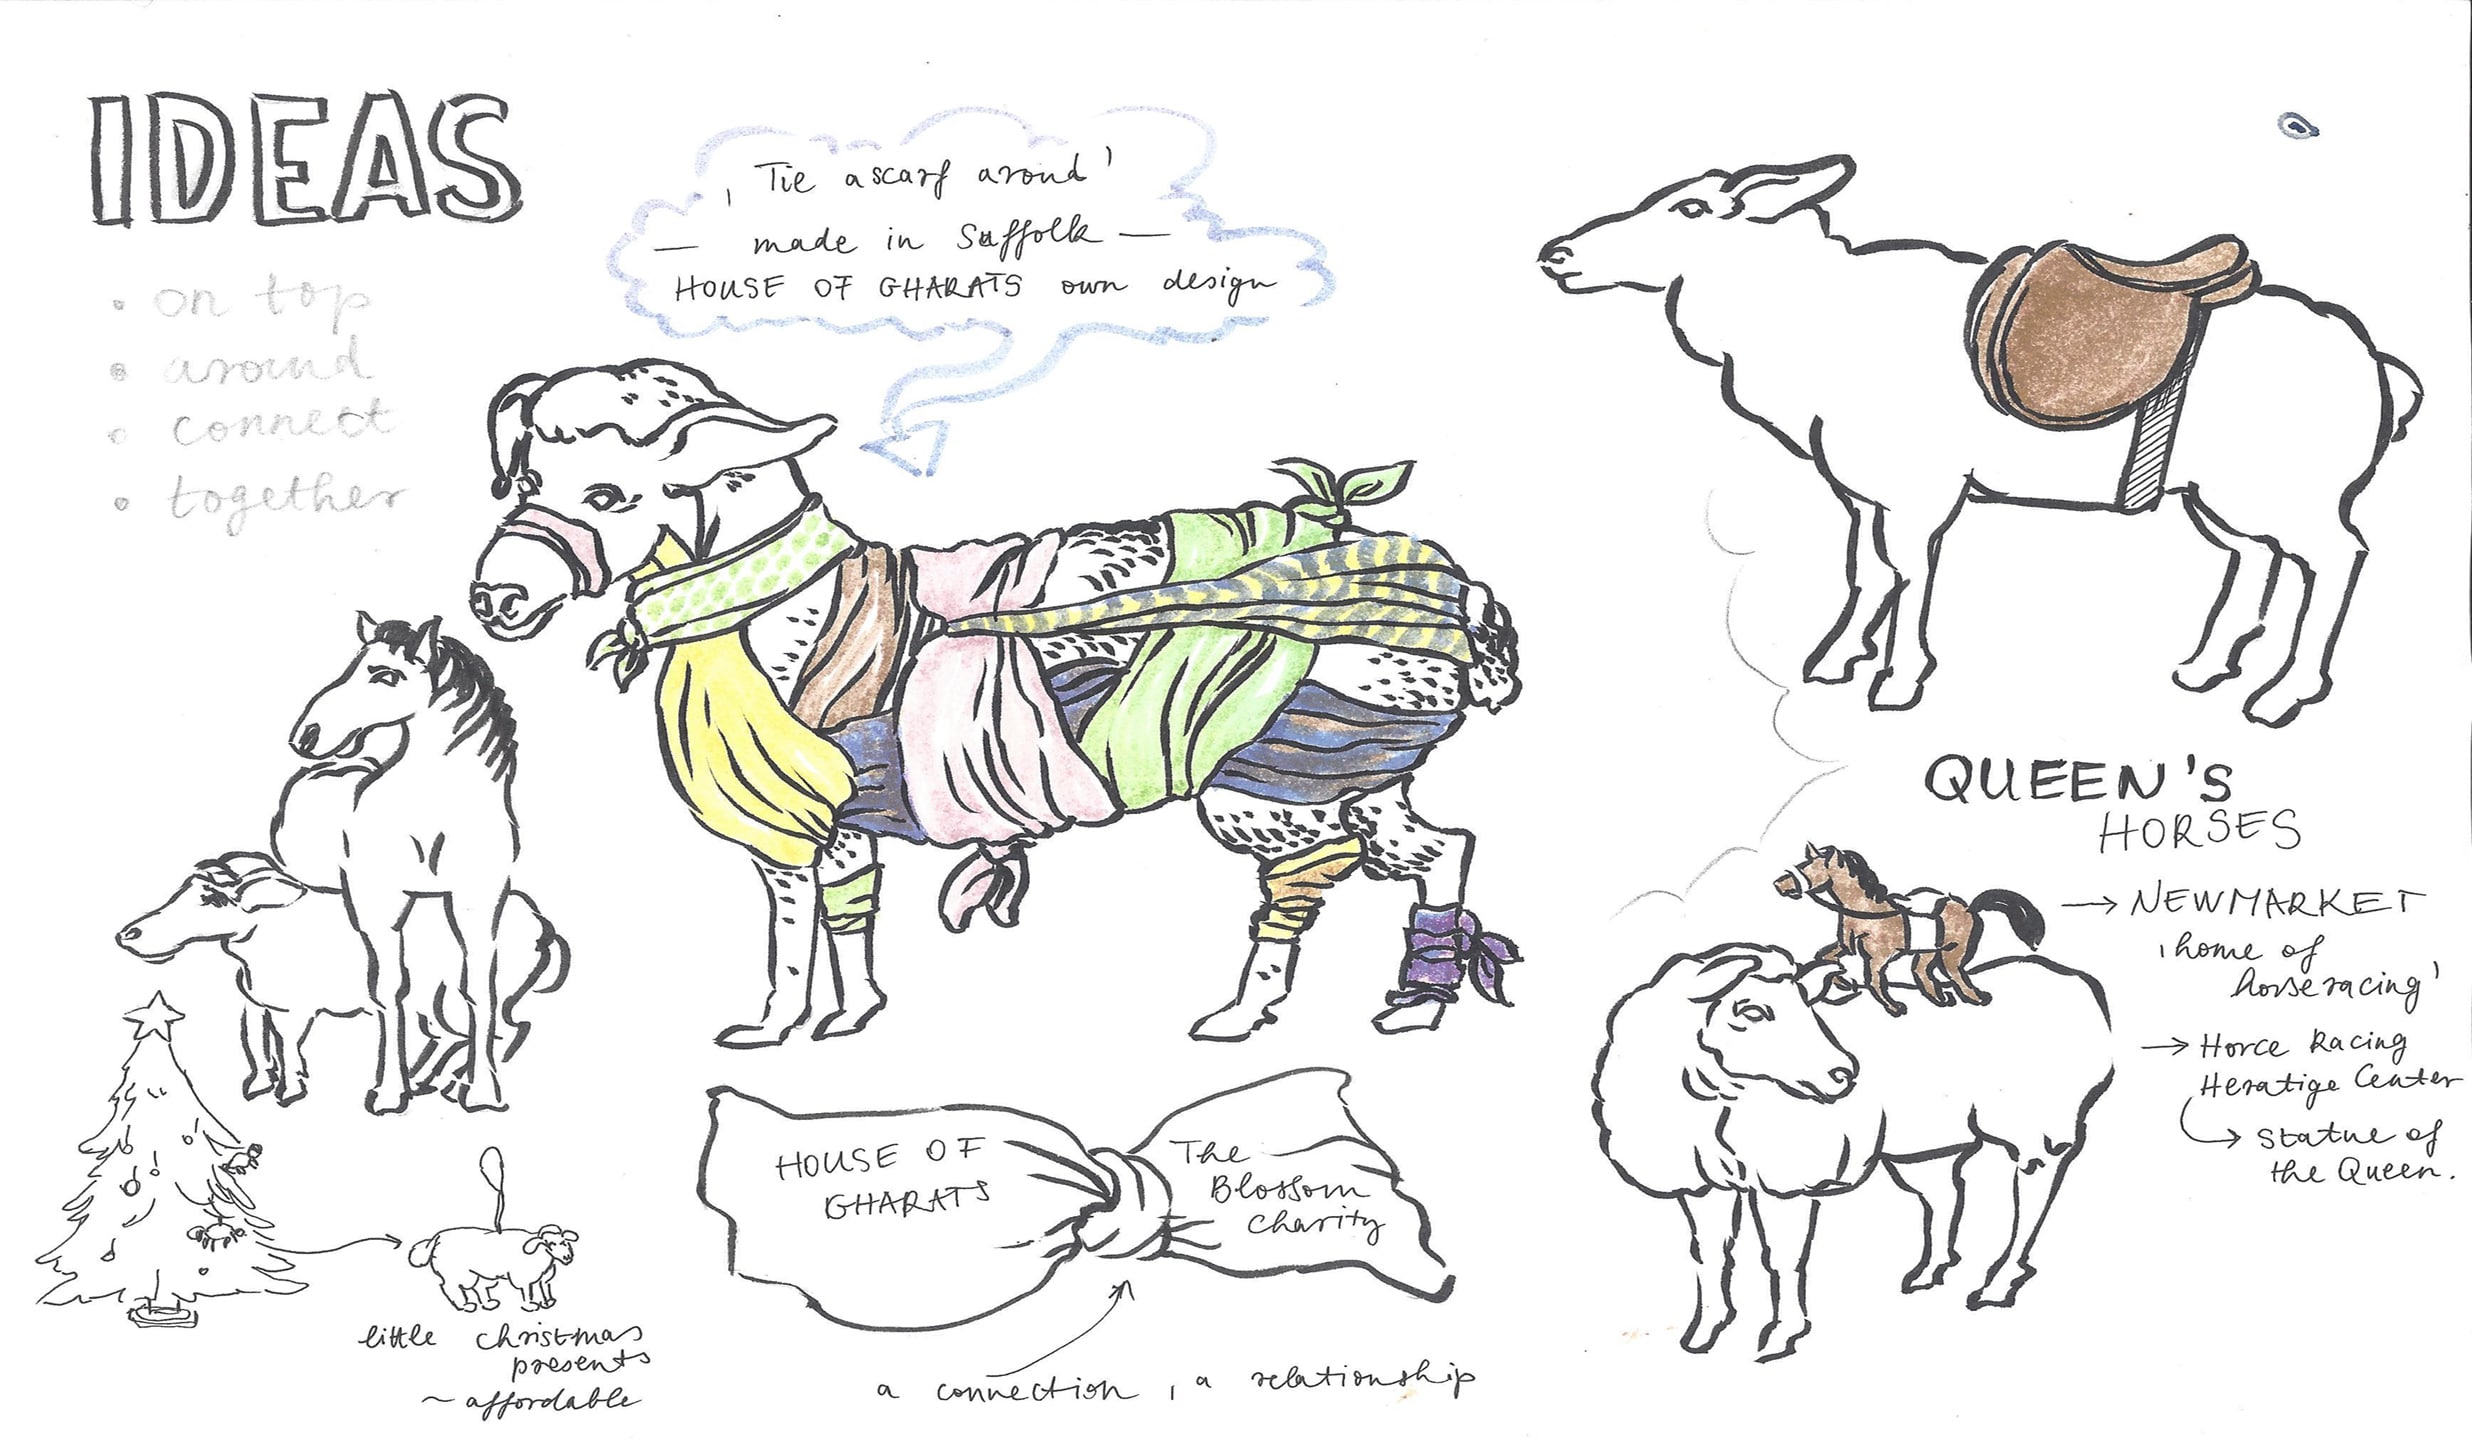 IDEAS
• on top
• around
• connect
• together
, Tie a scarf aroud'
— made in Suffolk —
HOUSE OF GHARATS own design
QUEEN'S
HORSES
→ NEWMARKET
, home of
horseracing'
→ Horce Racing
Heratige Center
→ Statue of
the Queen.
HOUSE OF
GHARATS
The
Blossom
Charity
a connection, a relationship
little christmas
presents
~ affordable